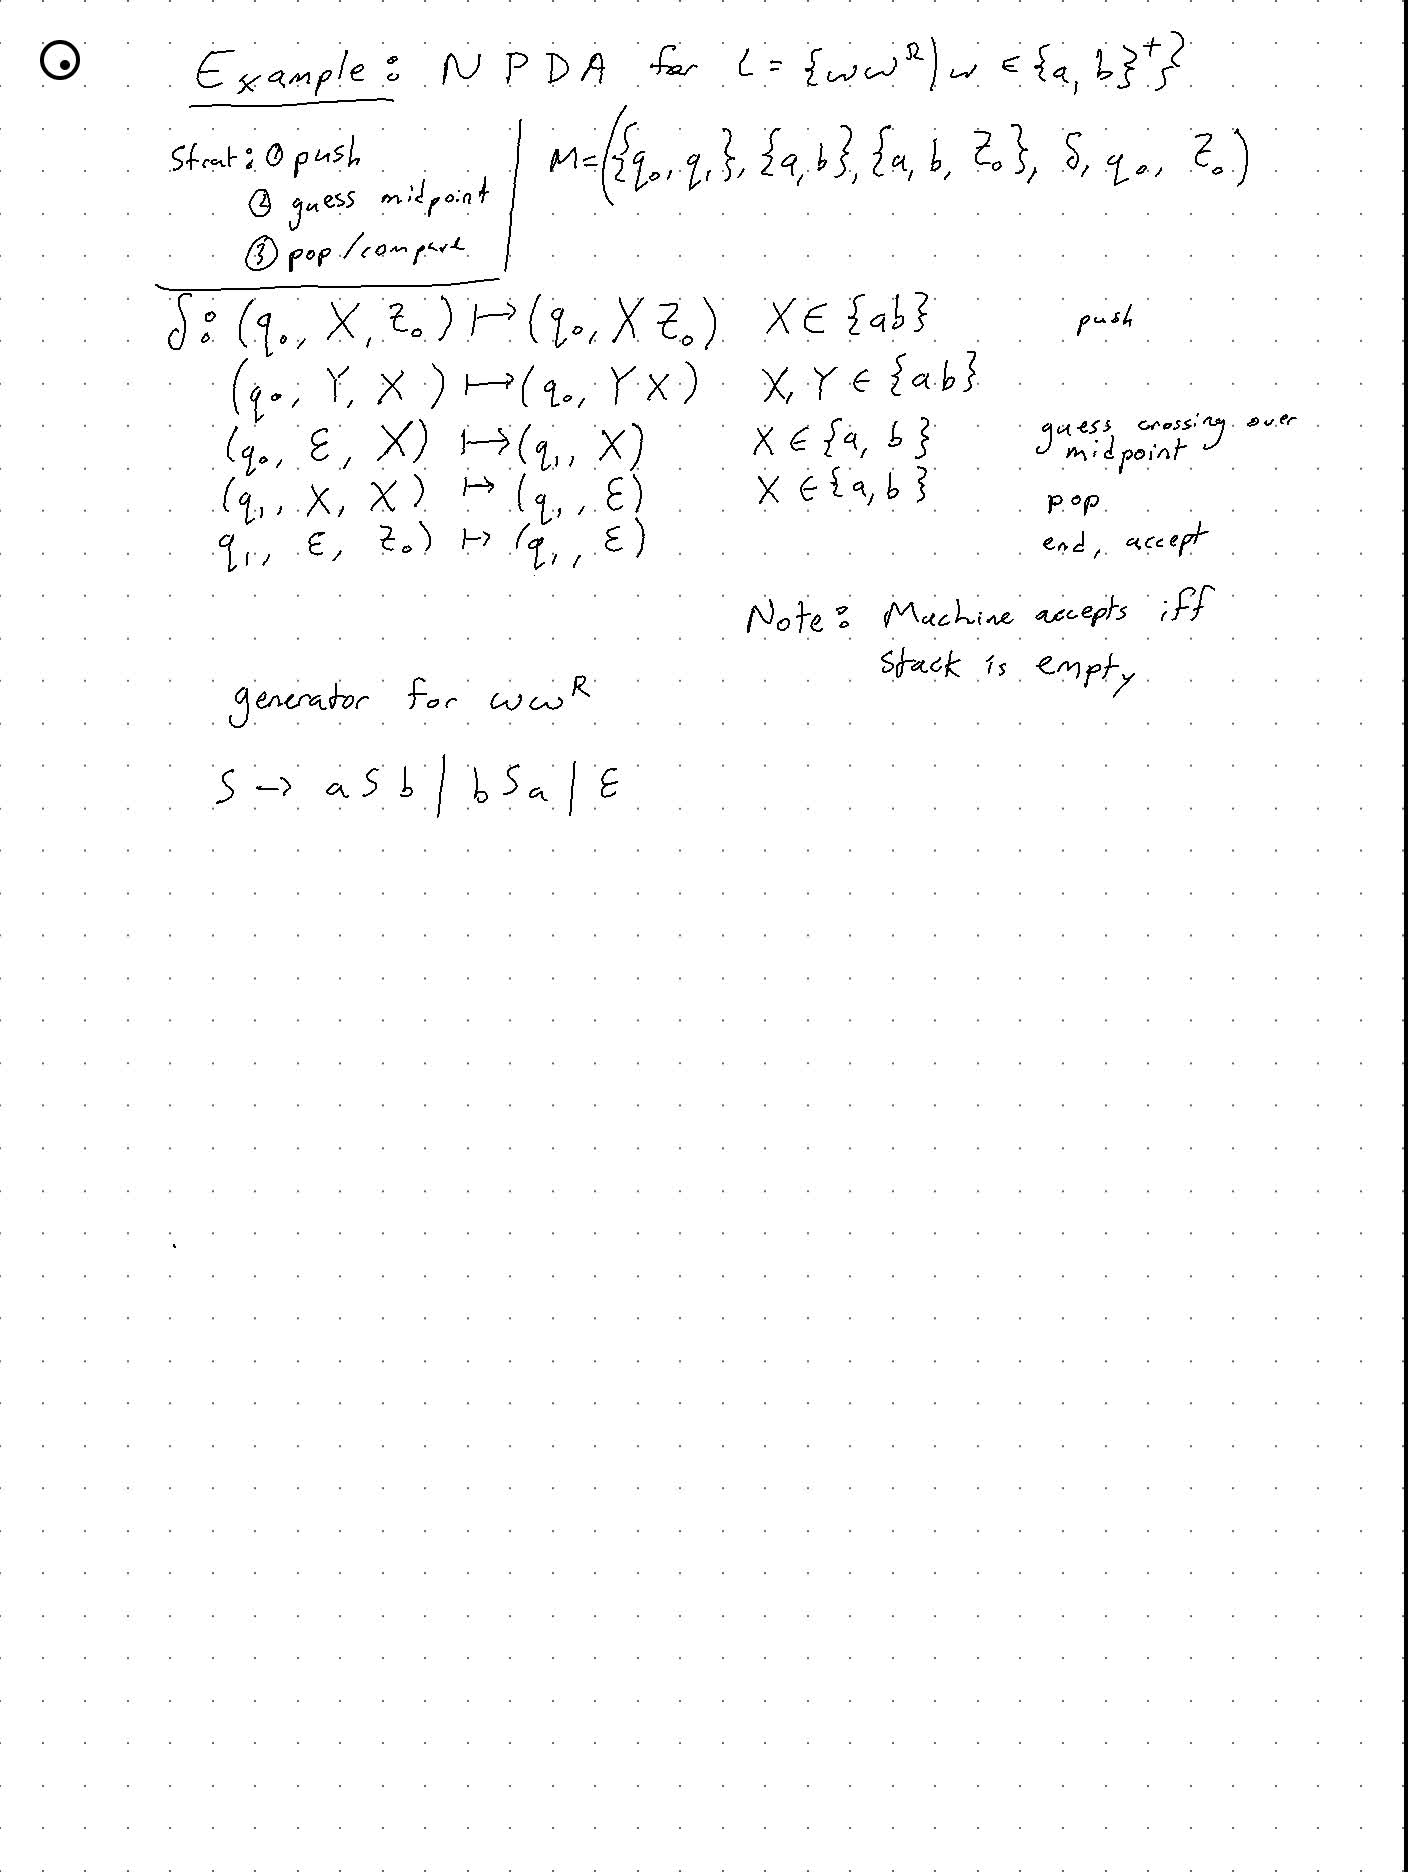 Example: NPDA for L = {ww^R | w ∈ {a, b}^+}
Strat: ① push
② guess midpoint
③ pop/compare
M = ({q₀, q₁}, {a, b}, {a, b, Z₀}, δ, q₀, Z₀)
δ: (q₀, X, Z₀) ↦ (q₀, X Z₀) X ∈ {ab} push
(q₀, Y, X) ↦ (q₀, Y X) X, Y ∈ {ab}
(q₀, ε, X) ↦ (q₁, X) X ∈ {a, b} guess crossing over
midpoint
(q₁, X, X) ↦ (q₁, ε) X ∈ {a, b} pop
q₁, ε, Z₀) ↦ (q₁, ε) end, accept
Note: Machine accepts iff
stack is empty
generator for ww^R
S → a S b | b S a | ε